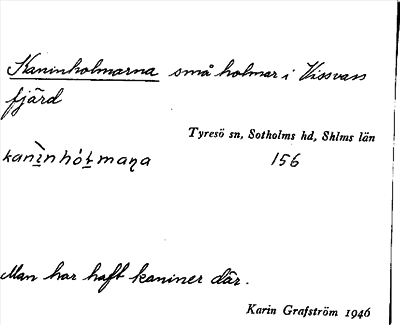 Kaninholmarna små holmar i Vissvass
fjärd
Tyresö sn, Sotholms hd, Shlms län
kanìnhóḷmaṇa 156
Man har haft kaniner där.
Karin Grafström 1946